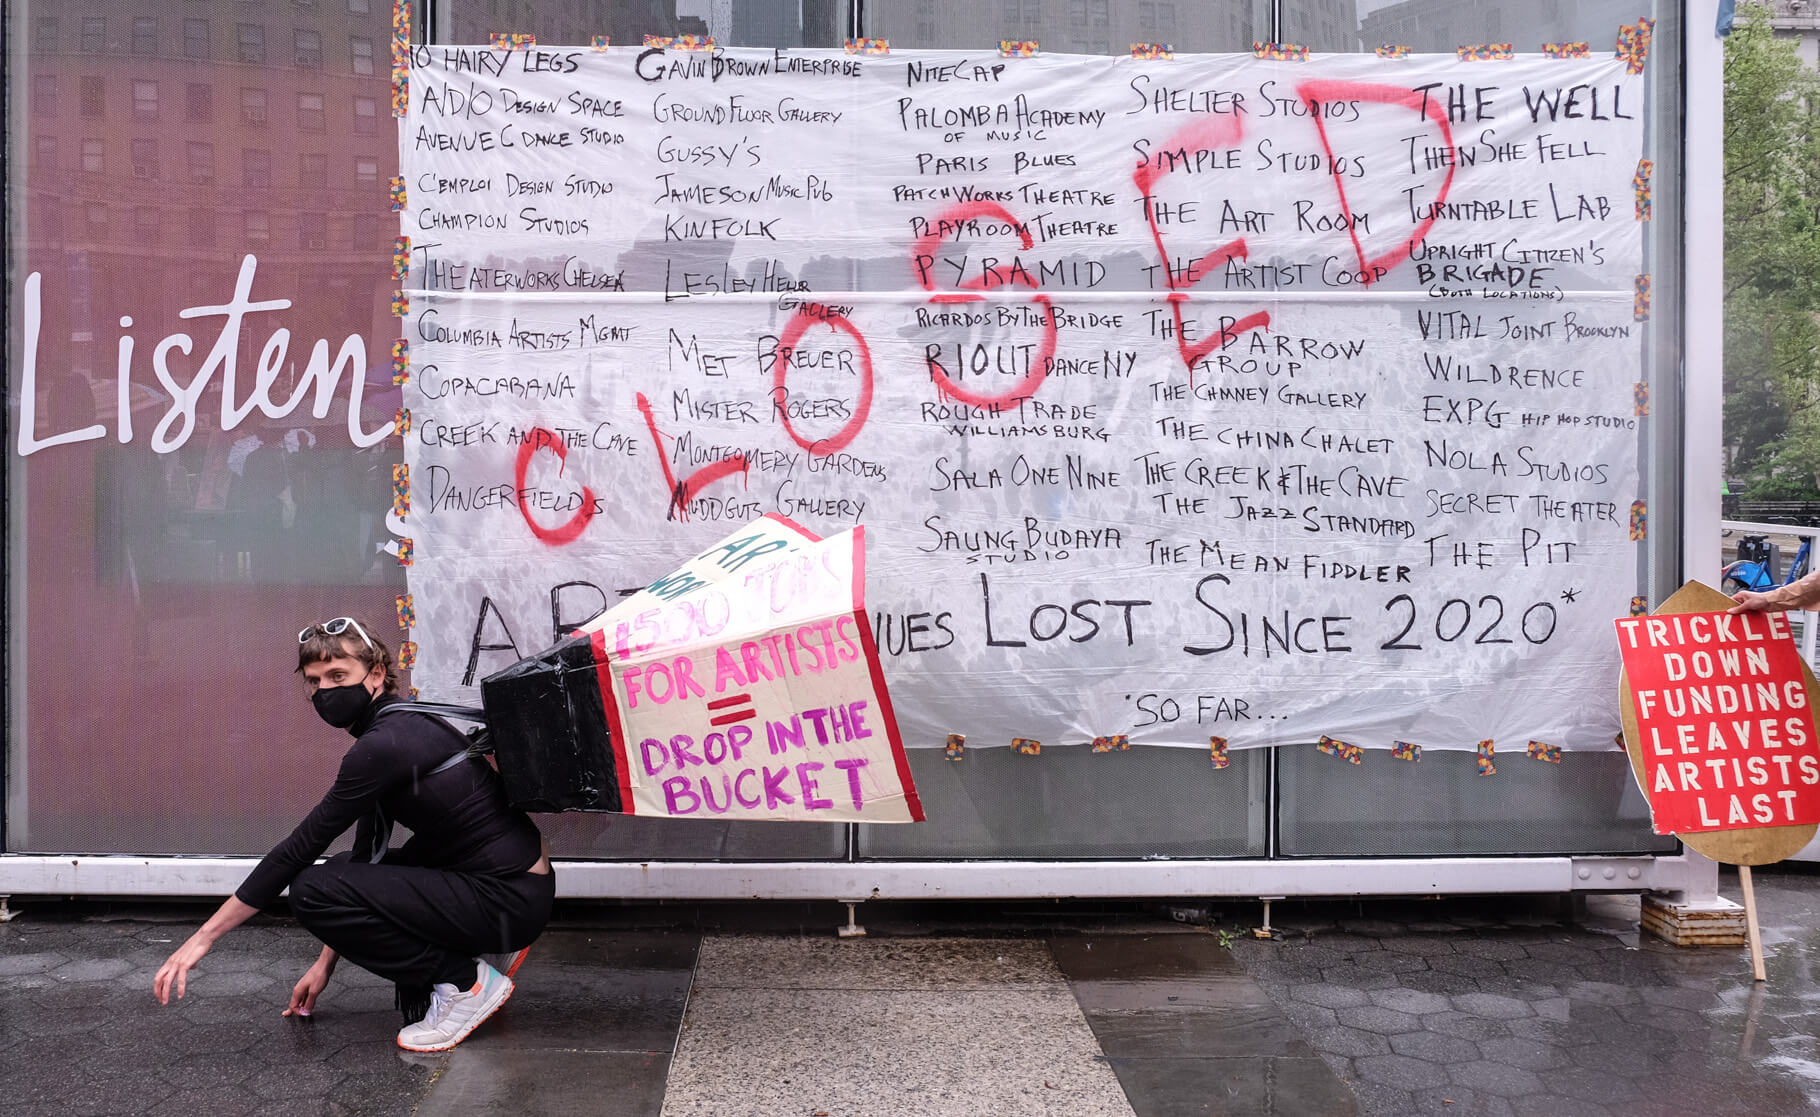 Listen
10 HAIRY LEGS
A/D/O DESIGN SPACE
AVENUE C DANCE STUDIO
C'EMPLOI DESIGN STUDIO
CHAMPION STUDIOS
THEATERWORKS CHELSEA
COLUMBIA ARTISTS MGMT
COPACABANA
CREEK AND THE CAVE
DANGERFIELDS
GAVIN BROWN ENTERPRISE
GROUND FLOOR GALLERY
GUSSY'S
JAMESON MUSIC PUB
KINFOLK
LESLEY HELLER
GALLERY
MET BREUER
MISTER ROGERS
MONTGOMERY GARDENS
MUDDGUTS GALLERY
NITECAP
PALOMBA ACADEMY
OF MUSIC
PARIS BLUES
PATCHWORKS THEATRE
PLAYROOM THEATRE
PYRAMID
RICARDOS BY THE BRIDGE
RIOULT DANCE NY
ROUGH TRADE
WILLIAMSBURG
SALA ONE NINE
SAUNG BUDAYA
STUDIO
SHELTER STUDIOS
SIMPLE STUDIOS
THE ART ROOM
THE ARTIST COOP
THE BARROW
GROUP
THE CHIMNEY GALLERY
THE CHINA CHALET
THE CREEK & THE CAVE
THE JAZZ STANDARD
THE MEAN FIDDLER
THE WELL
THEN SHE FELL
TURNTABLE LAB
UPRIGHT CITIZEN'S
BRIGADE
(BOTH LOCATIONS)
VITAL JOINT BROOKLYN
WILDRENCE
EXPG HIP HOP STUDIO
NOLA STUDIOS
SECRET THEATER
THE PIT
CLOSED
LOST SINCE 2020*
*SO FAR...
1500 JOBS
FOR ARTISTS
=
DROP IN THE
BUCKET
TRICKLE
DOWN
FUNDING
LEAVES
ARTISTS
LAST